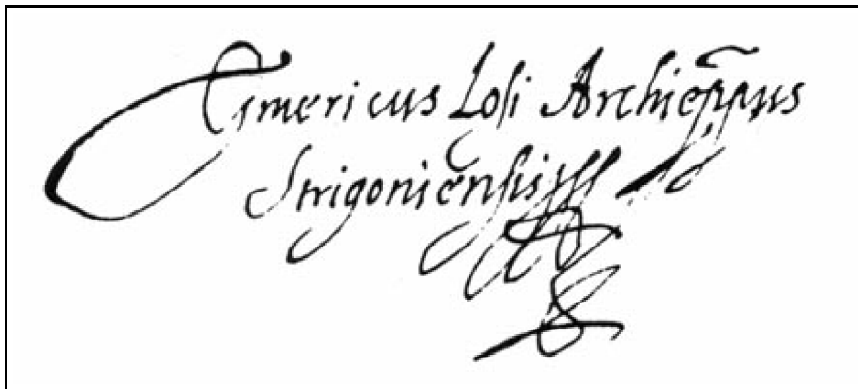 Emericus Losi Archiepp̄us
Strigoniensis